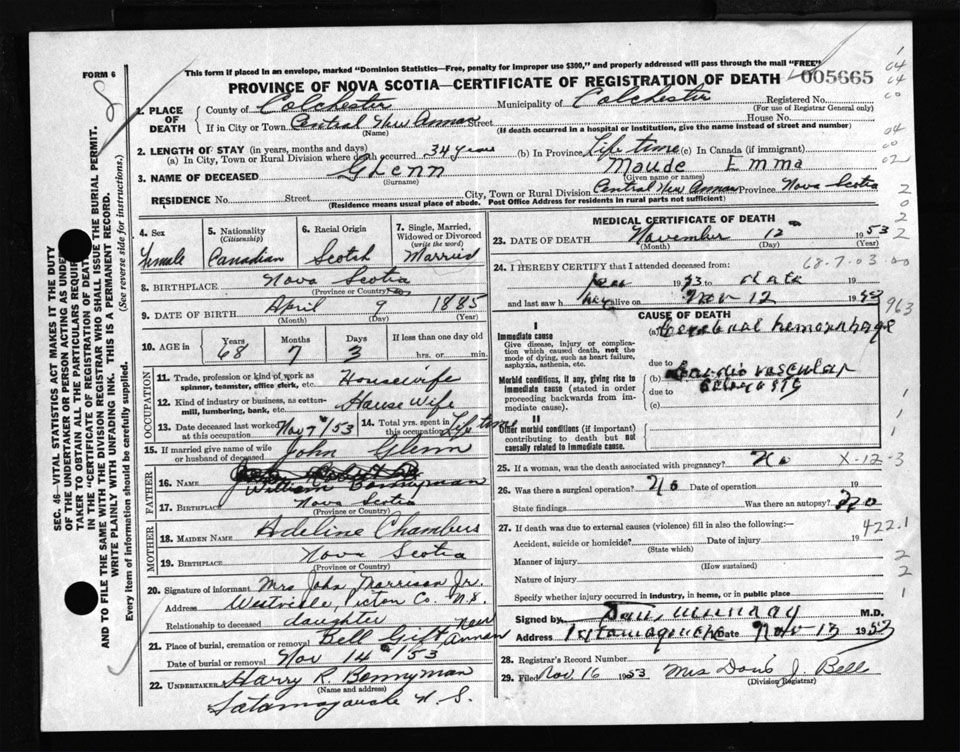 FORM 6
This form if placed in an envelope, marked "Dominion Statistics—Free, penalty for improper use $300," and properly addressed will pass through the mail "FREE"
PROVINCE OF NOVA SCOTIA—CERTIFICATE OF REGISTRATION OF DEATH 005665
8
SEC. 46—VITAL STATISTICS ACT MAKES IT THE DUTY
OF THE UNDERTAKER OR PERSON ACTING AS UNDER-
TAKER TO OBTAIN ALL THE PARTICULARS REQUIRED
IN THE "CERTIFICATE OF REGISTRATION OF DEATH"
AND TO FILE THE SAME WITH THE DIVISION REGISTRAR WHO SHALL ISSUE THE BURIAL PERMIT.
WRITE PLAINLY WITH UNFADING INK. THIS IS A PERMANENT RECORD.
Every item of information should be carefully supplied. (See reverse side for instructions.)
1. PLACE OF DEATH County of Colchester Municipality of Colchester Registered No.
(For use of Registrar General only)
If in City or Town Central New Annan Street House No.
(Name) (If death occurred in a hospital or institution, give the name instead of street and number)
2. LENGTH OF STAY (in years, months and days)
(a) In City, Town or Rural Division where death occurred 34 years (b) In Province Life time (c) In Canada (if immigrant)
3. NAME OF DECEASED Glenn Maude Emma
(Surname) (Given name or names)
RESIDENCE No. Street City, Town or Rural Division Central New Annan Province Nova Scotia
(Residence means usual place of abode. Post Office Address for residents in rural parts not sufficient)
4. Sex Female
5. Nationality (Citizenship) Canadian
6. Racial Origin Scotch
7. Single, Married, Widowed or Divorced (write the word) Married
8. BIRTHPLACE Nova Scotia
(Province or Country)
9. DATE OF BIRTH April 9 1885
(Month) (Day) (Year)
10. AGE in Years 68 Months 7 Days 3 If less than one day old hrs. or min.
OCCUPATION
11. Trade, profession or kind of work as spinner, teamster, office clerk, etc. Housewife
12. Kind of industry or business, as cotton-mill, lumbering, bank, etc. House Wife
13. Date deceased last worked at this occupation Nov 7/53 14. Total yrs. spent in this occupation Life time
15. If married give name of wife or husband of deceased John Glenn
FATHER
16. Name William Bonnyman
17. Birthplace Nova Scotia
(Province or Country)
MOTHER
18. MAIDEN NAME Adeline Chambers
19. BIRTHPLACE Nova Scotia
(Province or Country)
20. Signature of informant Mrs John Morrison Jr.
Address Westville Pictou Co. N.S.
Relationship to deceased daughter
21. Place of burial, cremation or removal Bell Gift New Annan
Date of burial or removal Nov 14 1953
22. UNDERTAKER Harry R. Bonnyman
(Name and address)
Tatamagouche N.S.
MEDICAL CERTIFICATE OF DEATH
23. DATE OF DEATH November 12 1953
(Month) (Day) (Year)
24. I HEREBY CERTIFY that I attended deceased from: 68-7-03-00
Jan 1953 to date
and last saw her alive on Nov 12 1953
CAUSE OF DEATH 963
I
Immediate cause
Give disease, injury or complication which caused death, not the mode of dying, such as heart failure, asphyxia, asthenia, etc.
(a) Cerebral hemorrhage
due to
Morbid conditions, if any, giving rise to immediate cause (stated in order proceeding backwards from immediate cause).
(b) Cardio vascular
due to
(c)
II
Other morbid conditions (if important) contributing to death but not causally related to immediate cause.
25. If a woman, was the death associated with pregnancy? No X-12-3
26. Was there a surgical operation? No Date of operation 19
State findings Was there an autopsy? No
27. If death was due to external causes (violence) fill in also the following:— 422.1
Accident, suicide or homicide? Date of injury 19
(State which)
Manner of injury
(How sustained)
Nature of injury
Specify whether injury occurred in industry, in home, or in public place
Signed by Dan Murray M.D.
Address Tatamagouche Date Nov 13 1953
28. Registrar's Record Number
29. Filed Nov. 16 1953 Mrs Doris J. Bell
(Division Registrar)